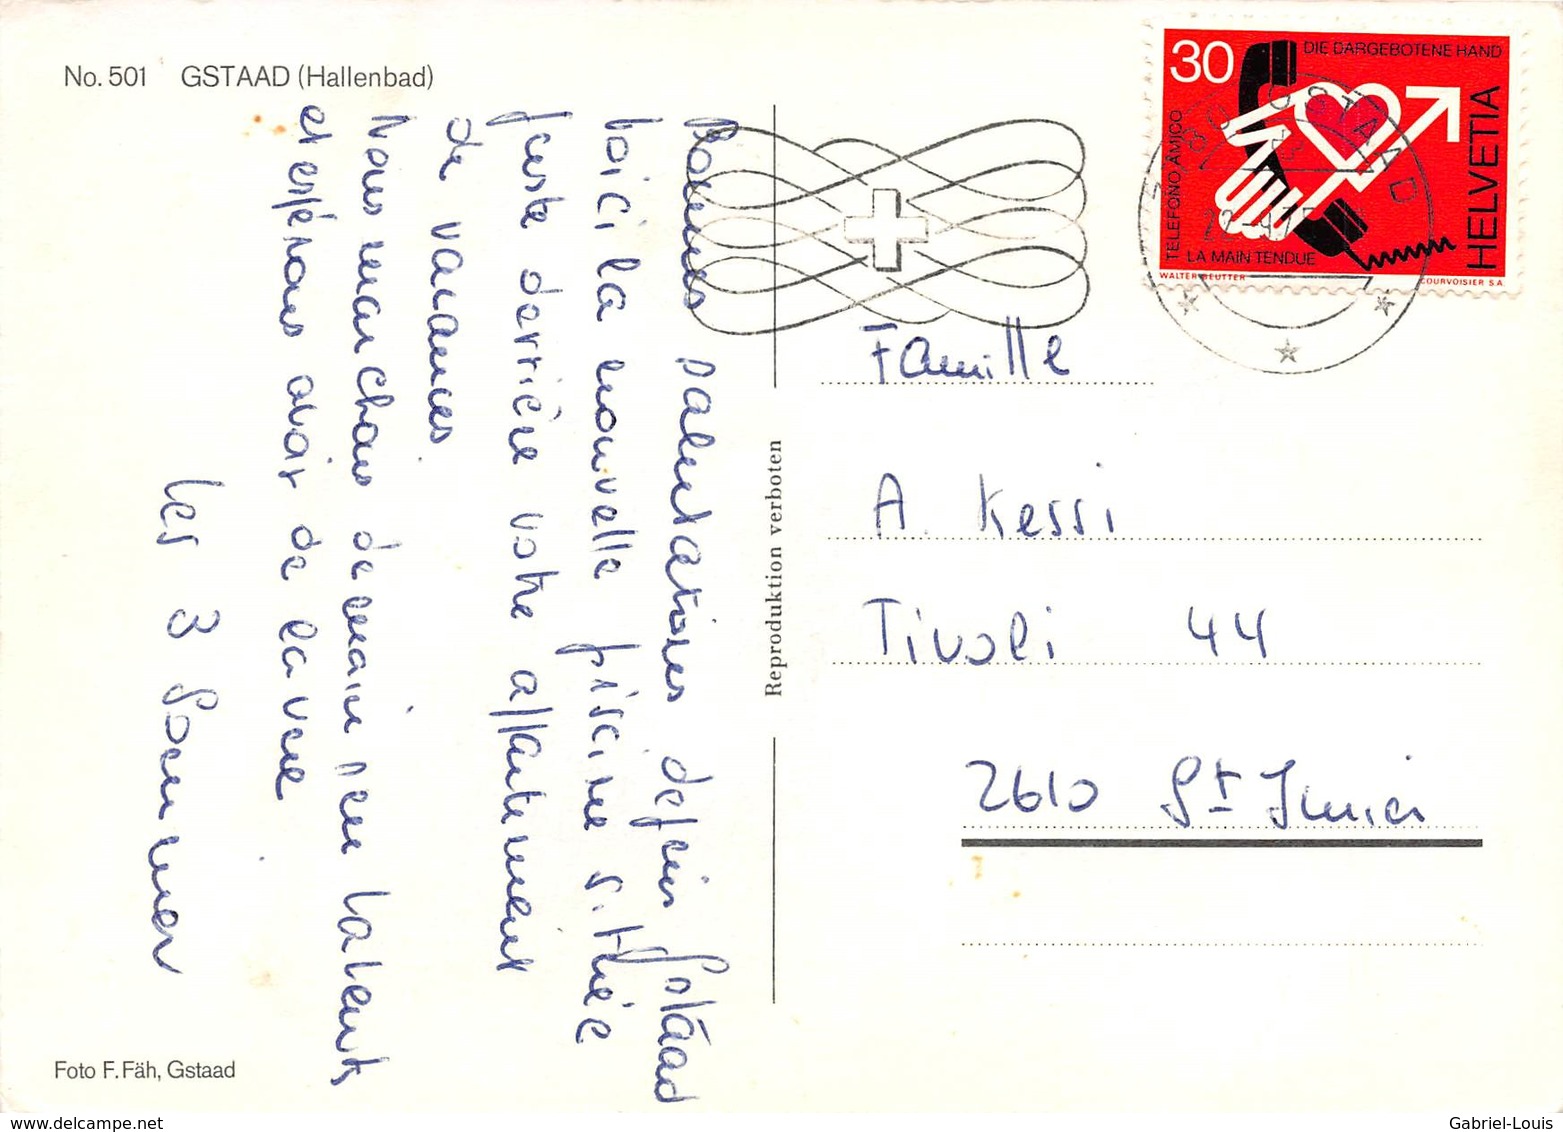 No. 501 GSTAAD (Hallenbad)
Bonnes salutations de Gstaad
Voici la nouvelle piscine située
juste derrière votre appartement
de vacances
Nous marchons demain sur Lauenen
et espérons avoir de la vue
Les 3 Sommer
Foto F. Fäh, Gstaad
Reproduktion verboten
30
DIE DARGEBOTENE HAND
TELEFONO AMICO
LA MAIN TENDUE
HELVETIA
WALTER BEUTTER
COURVOISIER S.A.
GSTAAD
Famille
A. Kessi
Tivoli 44
2610 St Imier
www.delcampe.net
Gabriel-Louis